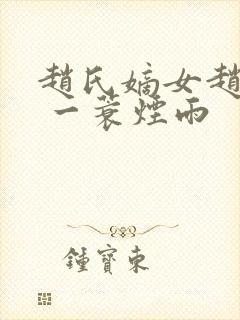 趙氏嫡女趙
一蓑煙雨
鍾寶東